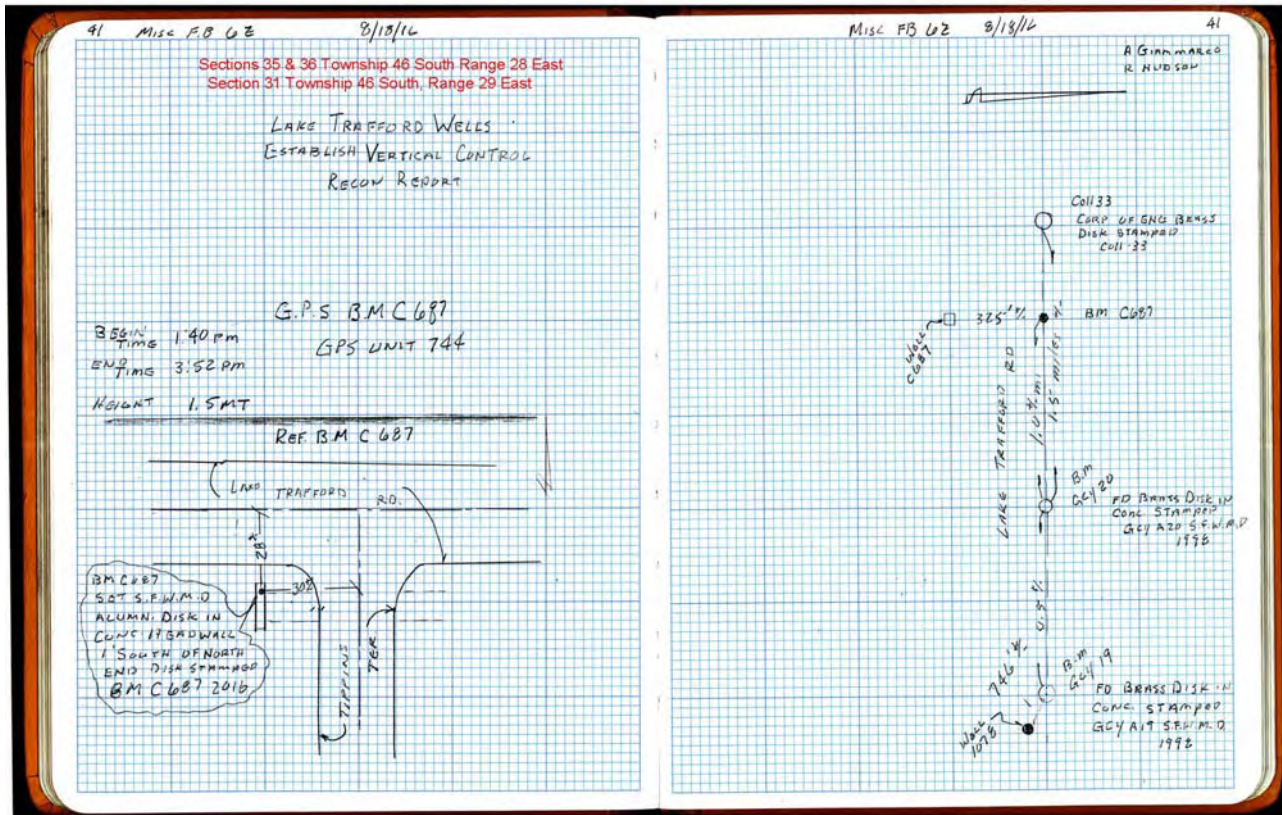 41 MISC F.B 62 8/18/16
Sections 35 & 36 Township 46 South Range 28 East
Section 31 Township 46 South, Range 29 East
LAKE TRAFFORD WELLS
ESTABLISH VERTICAL CONTROL
RECON REPORT
G.P.S B.M C 687
GPS UNIT 744
BEGIN TIME 1:40 pm
END TIME 3:52 pm
HEIGHT 1.5 MT
REF. B.M C 687
LAKE TRAFFORD RD.
28±
30±
BM C687
SET S.F.W.M.D
ALUMN. DISK IN
CONC HEADWALL
1' SOUTH OF NORTH
END DISK STAMPED
BM C 687 2016
TIPPINS
TER
MISC FB 62 8/18/16 41
A GIAMMARCO
R HUDSON
Coll 33
CORP OF ENG BRASS
DISK STAMPED
Coll-33
WELL
C687
325' +/-
BM C687
LAKE TRAFFORD RD
1.0 +/- mi
1.5 miles +/-
B.M
GCY 20
FD BRASS DISK IN
CONC STAMPED
GCY A20 S.F.W.M.D
1998
0.5 +/-
746' +/-
B.M
GCY 19
FD BRASS DISK IN
CONC. STAMPED
GCY A19 S.F.W.M.D
1998
WELL
1078